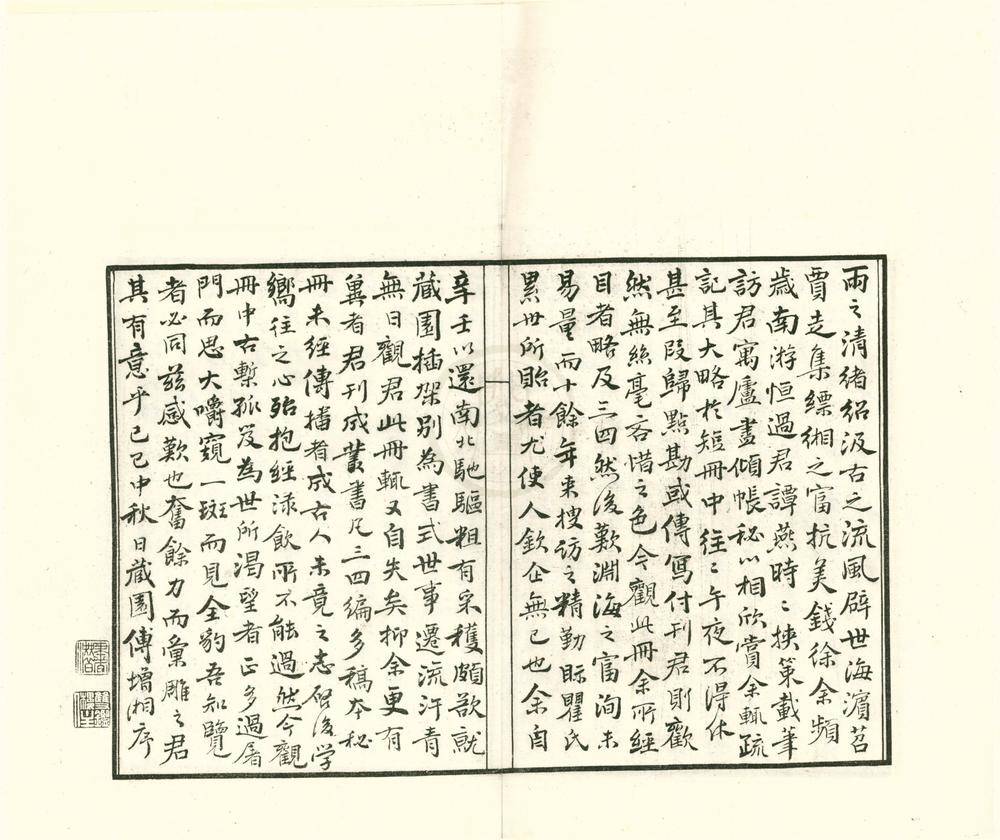 雨之清緒紹汲古之流風辟世海濵苕
賈走集縹緗之富抗美錢徐余頻
歲南游恒過君譚燕時〻挾策載筆
訪君寓廬盡傾帳秘以相欣賞余輒疏
記其大略於短冊中往〻午夜不得休
甚至叚歸點勘或傳寫付刊君則歡
然無絲毫吝惜之色今觀此冊余所經
目者略及三四然後歎淵海之富洵未
易量而十餘年来搜訪之精勤眎瞿氏
累世所貽者尤使人欽企無已也余自
辛壬以還南北馳驅粗有采穫頗欲就
藏園插架別為書式世事遷流汗青
無日觀君此冊輒又自失矣抑余更有
冀者君刊成叢書凡三四編多稿本秘
冊未經傳播者成古人未竟之志啓後学
嚮往之心殆抱經淥飲所不能過然今觀
冊中古槧孤笈為世所渴望者正多過屠
門而思大嚼窺一斑而見全豹吾知覽
者必同兹感歎也奮餘力而彙雕之君
其有意乎己巳中秋日藏園傅增湘序